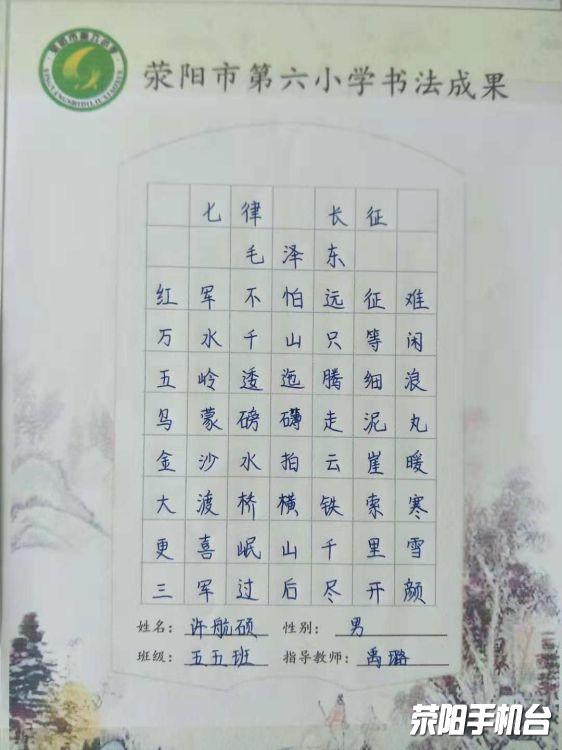 荥阳市第六小学书法成果
七律 长征
毛泽东
红军不怕远征难
万水千山只等闲
五岭逶迤腾细浪
乌蒙磅礴走泥丸
金沙水拍云崖暖
大渡桥横铁索寒
更喜岷山千里雪
三军过后尽开颜
姓名：许航硕 性别：男
班级：五五班 指导教师：禹璐
荥阳手机台